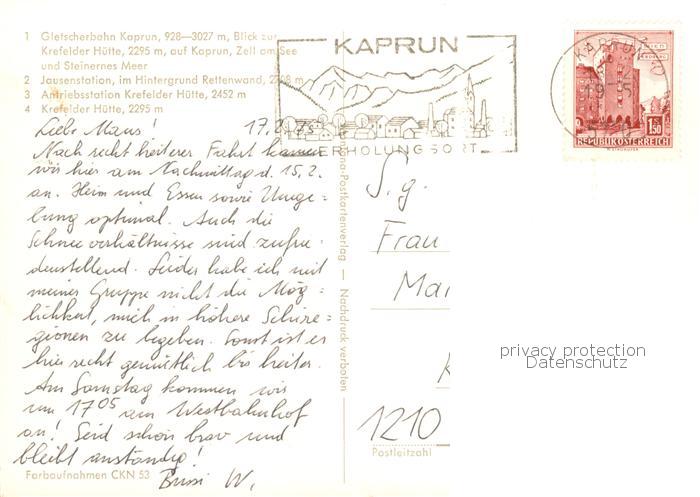 1 Gletscherbahn Kaprun, 928—3027 m, Blick zur
Krefelder Hütte, 2295 m, auf Kaprun, Zell am See
und Steinernes Meer
2 Jausenstation, im Hintergrund Rettenwand, 2708 m
3 Antriebsstation Krefelder Hütte, 2452 m
4 Krefelder Hütte, 2295 m
Liebe Maus! 17.2.
Nach recht heiterer Fahrt kamen
wir hier am Nachmittag d. 15.2.
an. Heim und Essen sowie Umge-
bung optimal. Auch die
Schneeverhältnisse sind zufrie-
denstellend. Leider habe ich mit
meiner Gruppe nicht die Mög-
lichkeit, mich in höhere Schire-
gionen zu begeben. Sonst ist er
hier recht gemütlich bis heiter.
Am Samstag kommen wir
um 17 05 am Westbahnhof
an! Seid schön brav und
bleibt anständig!
Bussi W.
Farbaufnahmen CKN 53
-Postkartenverlag — Nachdruck verboten
KAPRUN
ERHOLUNGSORT
KAPRUN
REPUBLIK ÖSTERREICH
1.50
S. g.
Frau
Ma
K
1210
Postleitzahl
privacy protection
Datenschutz